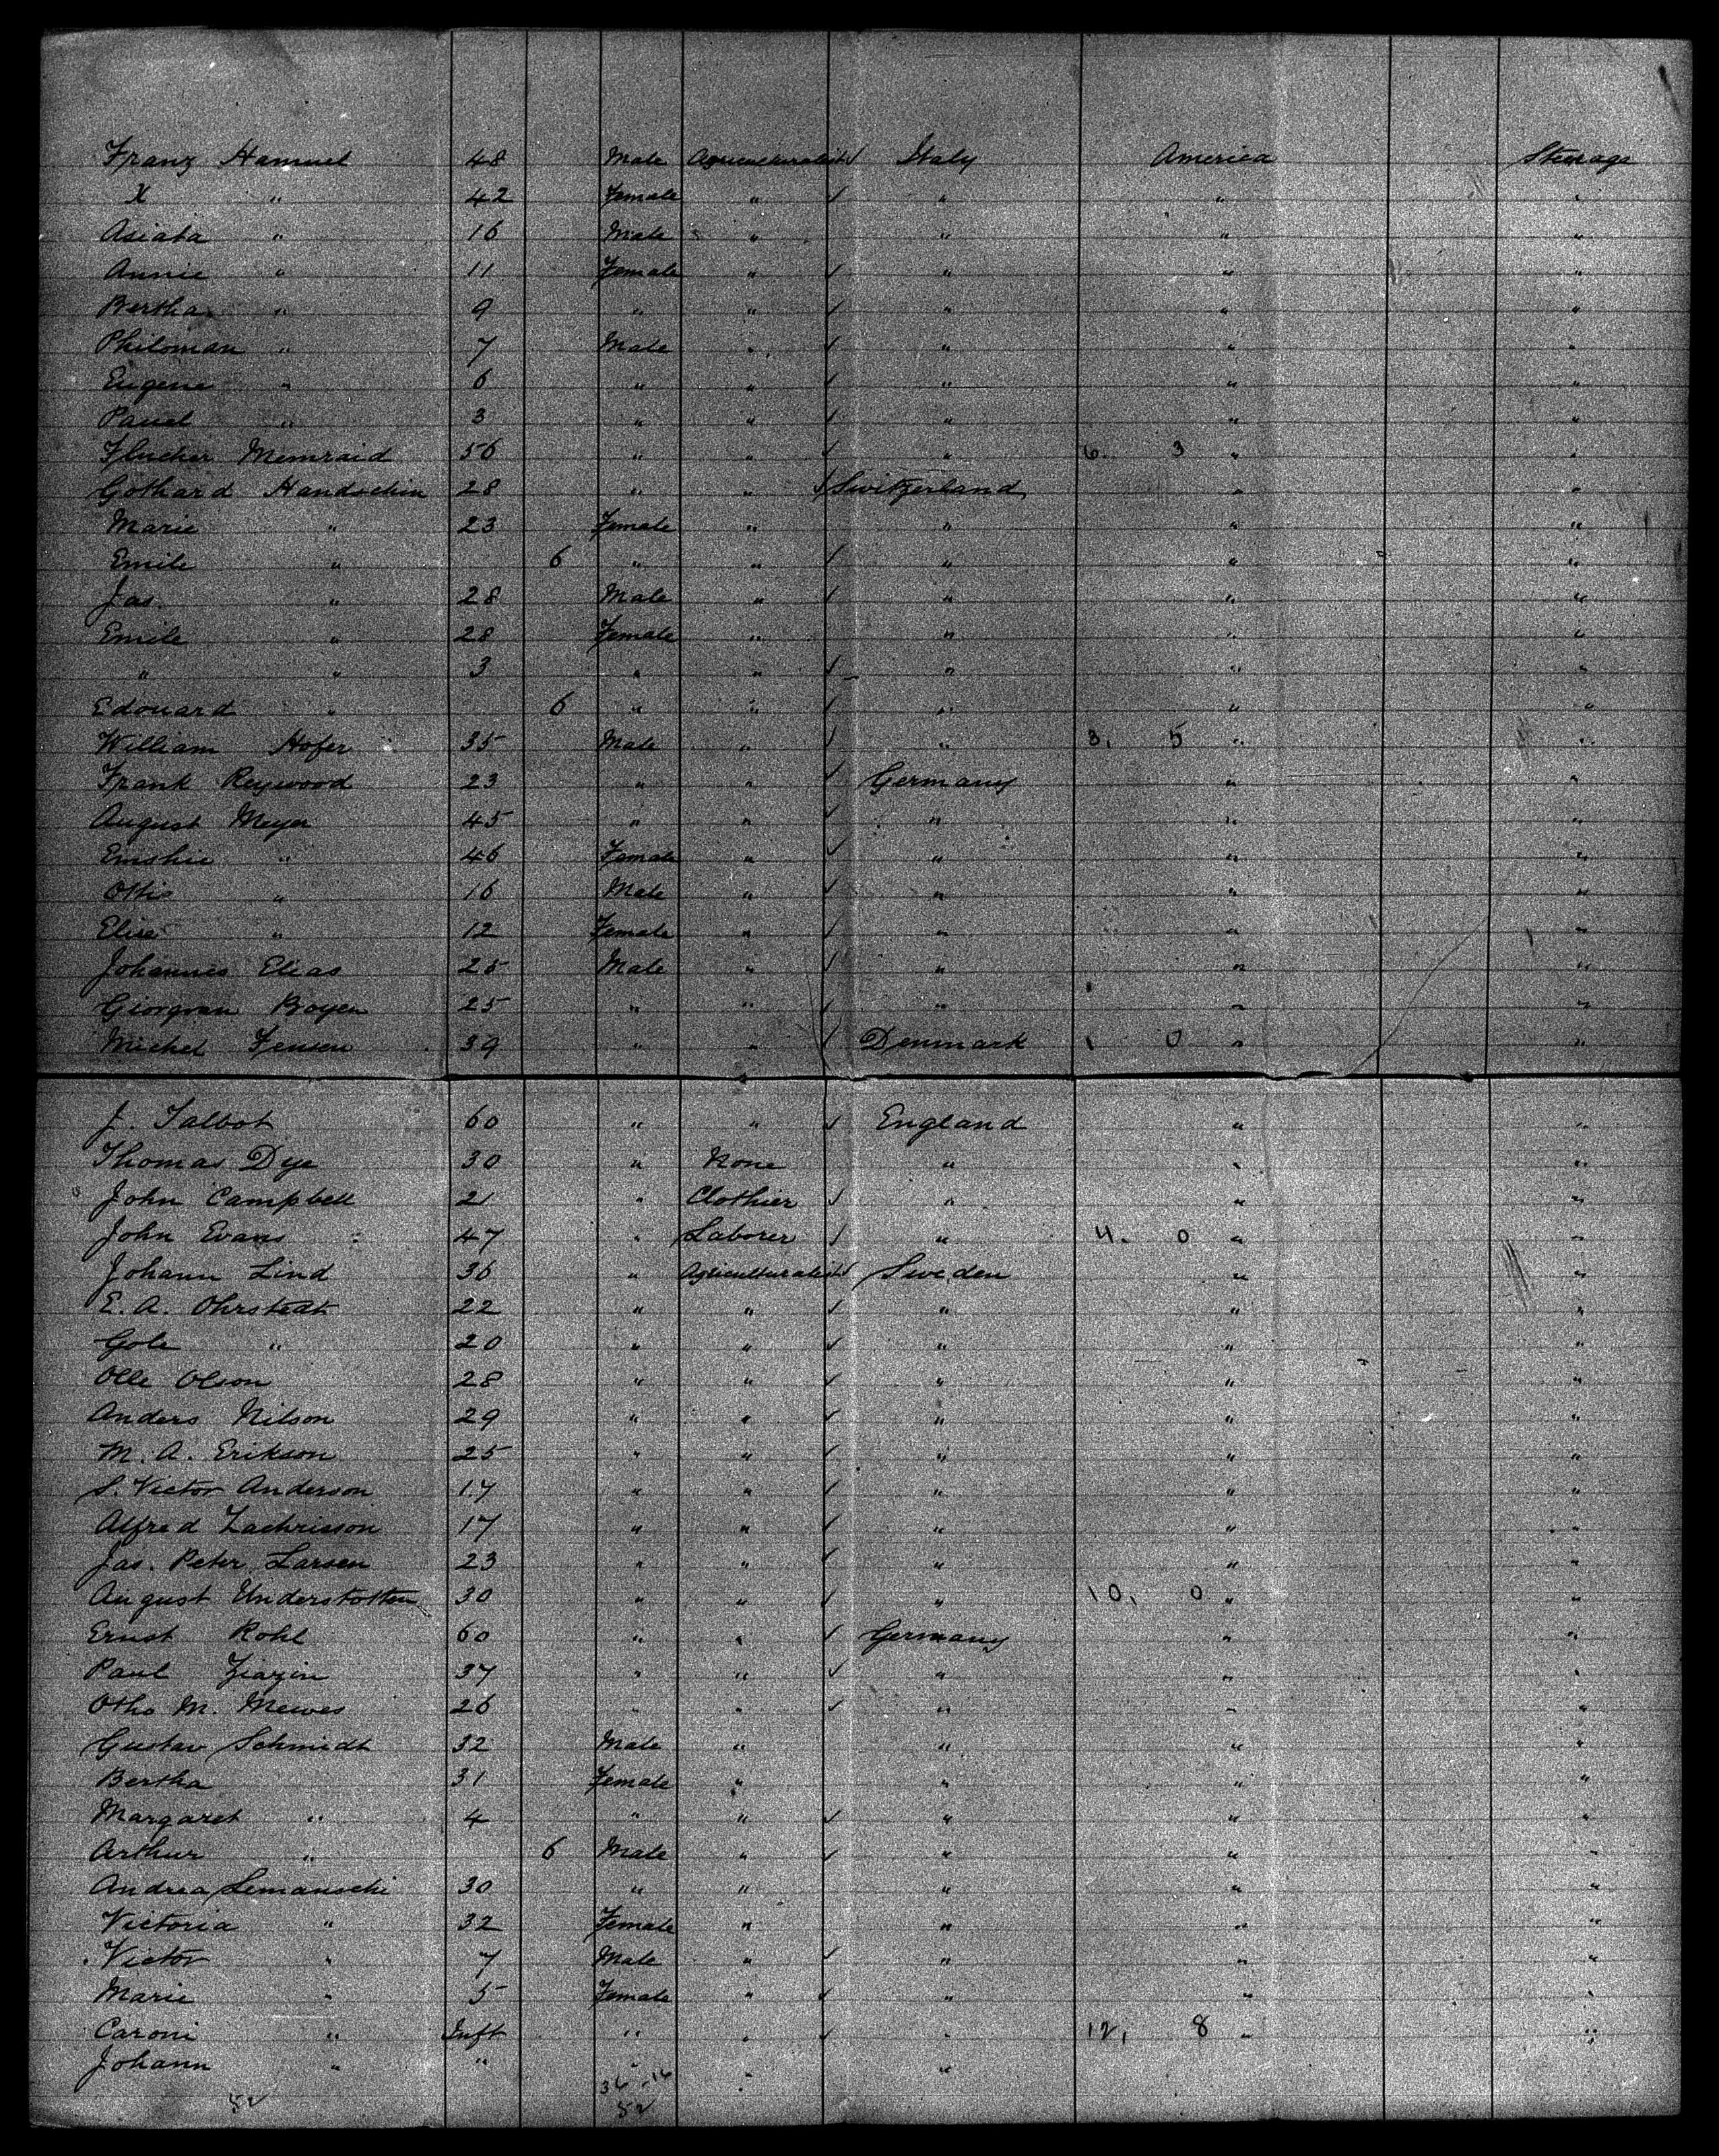 Franz Hamuel 48 Male Agriculturalist ✓ Italy America Steerage
X " 42 Female " ✓ " " "
Asiata " 16 Male " " " "
Annie " 11 Female " ✓ " " "
Bertha " 9 " " ✓ " " "
Philoman " 7 Male " ✓ " " "
Eugene " 6 " " ✓ " " "
Pauel " 3 " " ✓ " " "
Flucher Memraid 56 " " ✓ " 6. 3 " "
Gothard Handschin 28 " " ✓ Switzerland " "
Marie " 23 Female " " " "
Emile " 6 " " ✓ " " "
Jas. " 28 Male " ✓ " " "
Emile " 28 Female " " " "
" " 3 " " ✓ " " "
Edouard " 6 " " ✓ " " "
William Hofer 35 Male " ✓ " 3, 5 " "
Frank Reywood 23 " " ✓ Germany " "
August Meyer 45 " " ✓ " " "
Emshie " 46 Female " ✓ " " "
Otto " 16 Male " ✓ " " "
Elise " 12 Female " ✓ " " "
Johannes Elias 25 Male " ✓ " " "
Giorgvan Boyen 25 " " ✓ " " "
Michel Jensen 39 " " ✓ Denmark 1 0 " "
J. Talbot 60 " " ✓ England " "
Thomas Dye 30 " None " " "
John Campbell 21 " Clothier ✓ " " "
John Evans 47 " Laborer ✓ " 4. 0 " "
Johann Lind 36 " Agriculturalist ✓ Sweden " "
E. A. Ohrstedt 22 " " ✓ " " "
Gole " 20 " " ✓ " " "
Olle Olson 28 " " ✓ " " "
Anders Nilson 29 " " ✓ " " "
M. A. Erikson 25 " " ✓ " " "
S. Victor Anderson 17 " " ✓ " " "
Alfred Zachrisson 17 " " ✓ " " "
Jas. Peter Larsen 23 " " ✓ " " "
August Understotten 30 " " ✓ " 10, 0 " "
Ernst Kohl 60 " " ✓ Germany " "
Paul Ziazin 37 " " ✓ " " "
Otho M. Mewes 26 " " ✓ " " "
Gustav Schmidt 32 Male " " " "
Bertha 31 Female " " " "
Margaret " 4 " " ✓ " " "
Arthur " 6 Male " ✓ " " "
Andrea Lemanschi 30 " " " " "
Victoria " 32 Female " " " "
Victor " 7 Male " ✓ " " "
Marie " 5 Female " ✓ " " "
Caroni " Inft " " ✓ " 12, 8 " "
Johann " " " " "
36 16
52 52